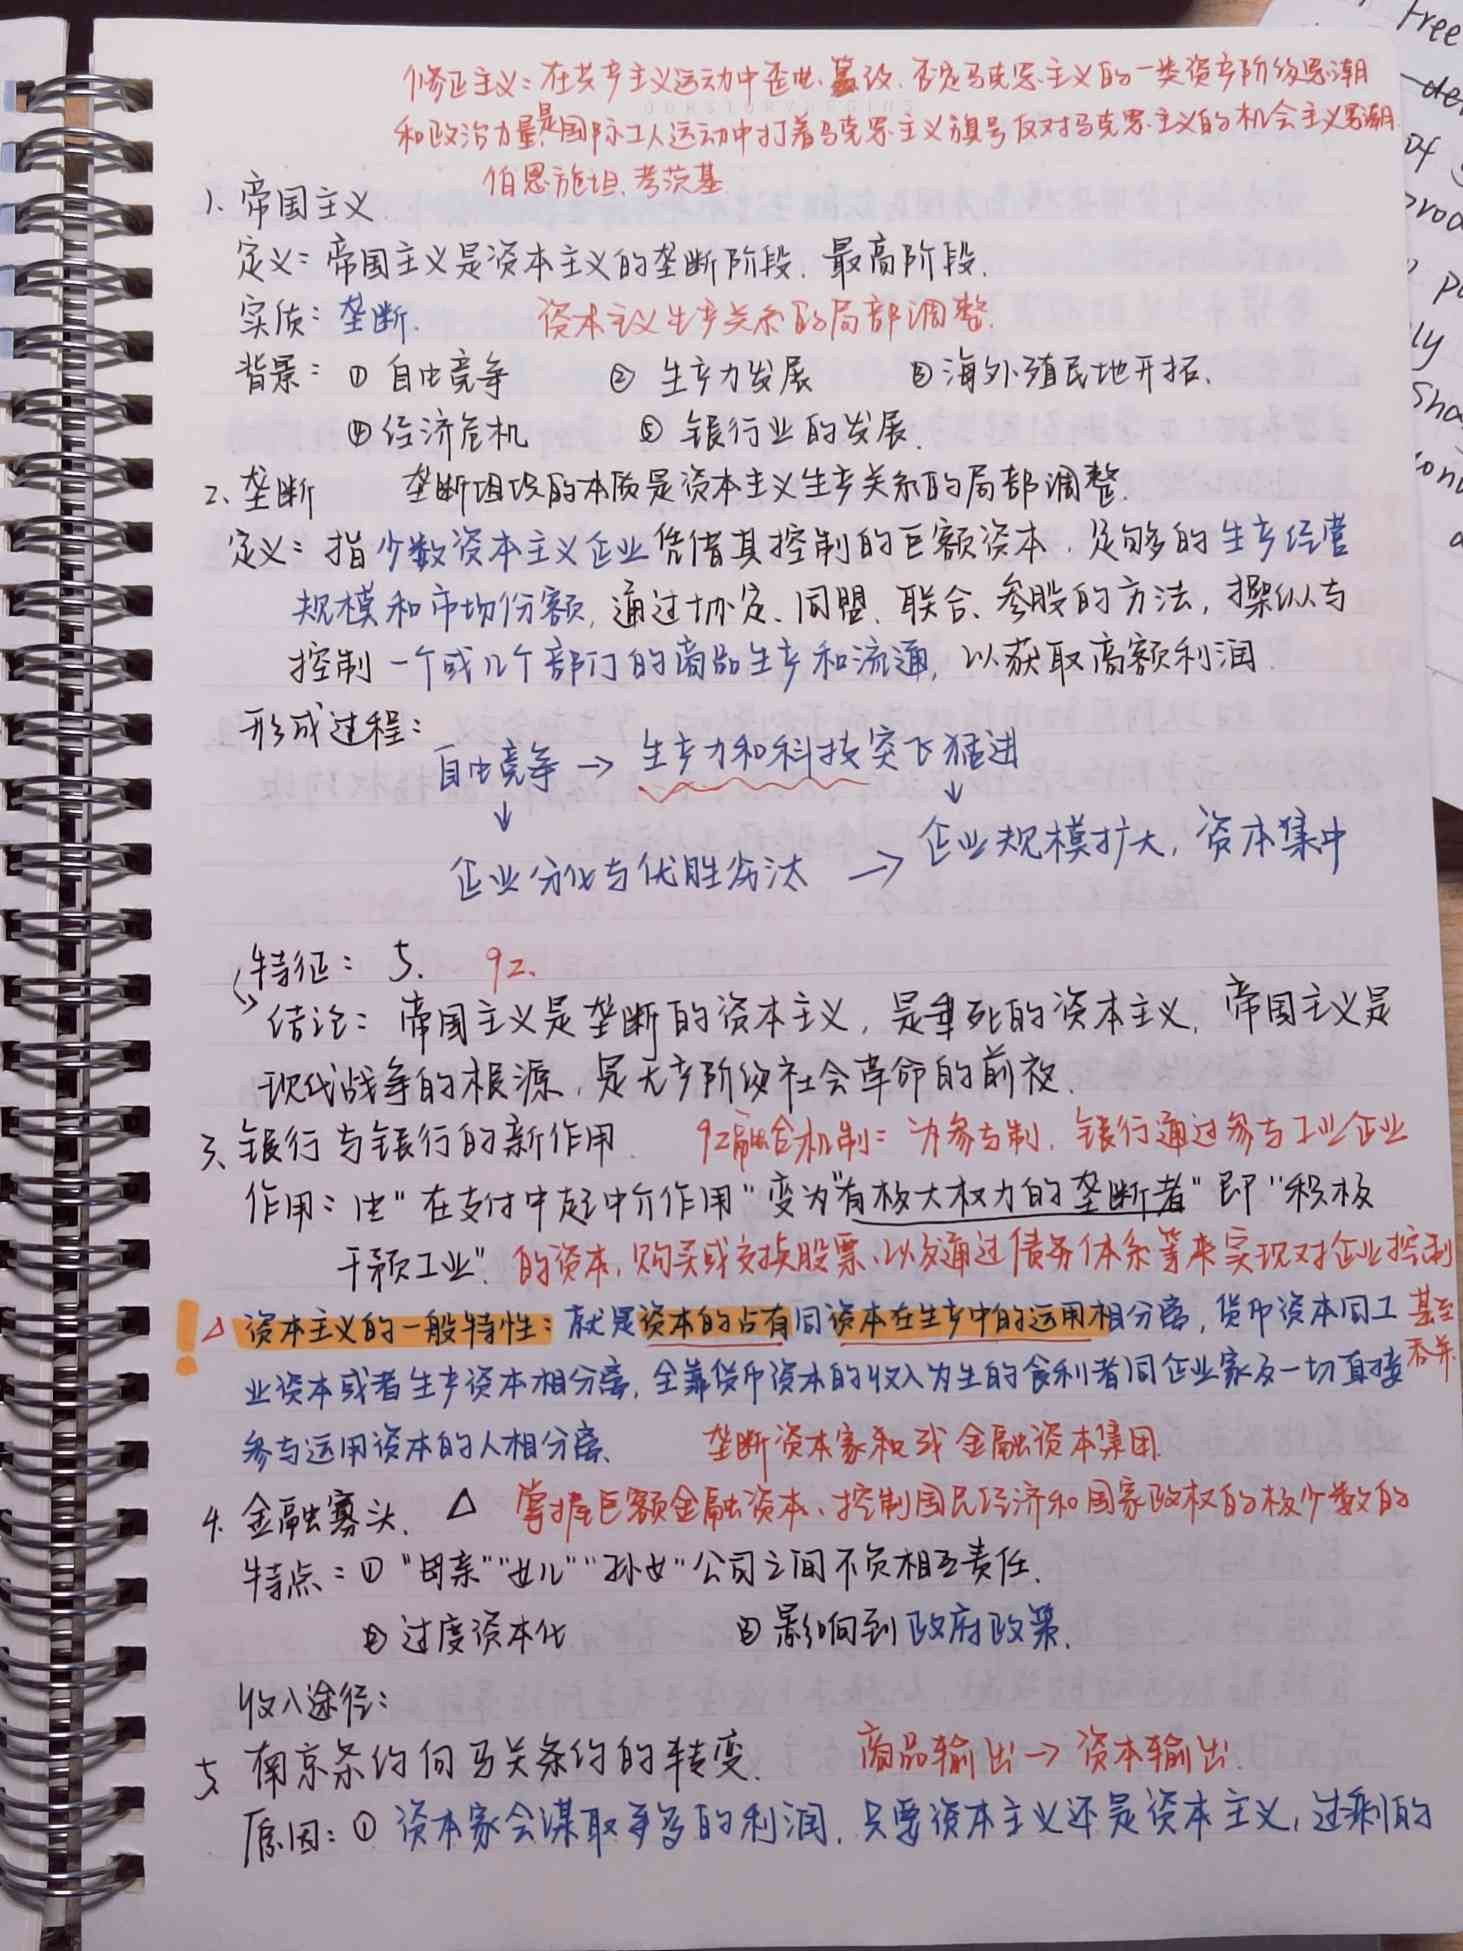 修正主义：在共产主义运动中歪曲、篡改、否定马克思主义的一类资产阶级思潮
和政治力量,是国际工人运动中打着马克思主义旗号反对马克思主义的机会主义思潮.
伯恩施坦、考茨基
1. 帝国主义
定义：帝国主义是资本主义的垄断阶段、最高阶段.
实质：垄断. 资本主义生产关系的局部调整.
背景：① 自由竞争 ② 生产力发展 ③ 海外殖民地开拓.
④ 经济危机 ⑤ 银行业的发展.
2、垄断 垄断组织的本质是资本主义生产关系的局部调整.
定义：指少数资本主义企业凭借其控制的巨额资本、足够的生产经营
规模和市场份额, 通过协定、同盟、联合、参股的方法, 操纵与
控制一个或几个部门的商品生产和流通, 以获取高额利润.
形成过程：
自由竞争 → 生产力和科技突飞猛进
↓ ↓
企业分化与优胜劣汰 → 企业规模扩大, 资本集中
特征： 5. 92.
结论：帝国主义是垄断的资本主义, 是垂死的资本主义, 帝国主义是
现代战争的根源, 是无产阶级社会革命的前夜.
3、银行与银行的新作用. 92融合机制：为参与制, 银行通过参与工业企业
作用：由“在支付中起中介作用”变为“有极大权力的垄断者”即“积极
干预工业”. 的资本, 购买或交换股票、以及通过债务体系等来实现对企业控制
! △ 资本主义的一般特性：就是资本的占有同资本在生产中的运用相分离, 货币资本同工 甚至
业资本或者生产资本相分离, 全靠货币资本的收入为生的食利者同企业家及一切直接 吞并.
参与运用资本的人相分离. 垄断资本家和或金融资本集团.
4. 金融寡头. △ 掌握巨额金融资本、控制国民经济和国家政权的极少数的
特点：① “母亲”“女儿”“孙女”公司之间不负相互责任.
② 过度资本化 ③ 影响到政府政策.
收入途径：
5. 南京条约向马关条约的转变. 商品输出 → 资本输出.
原因：① 资本家会谋取更多的利润, 只要资本主义还是资本主义, 过剩的
Free
of
Sha